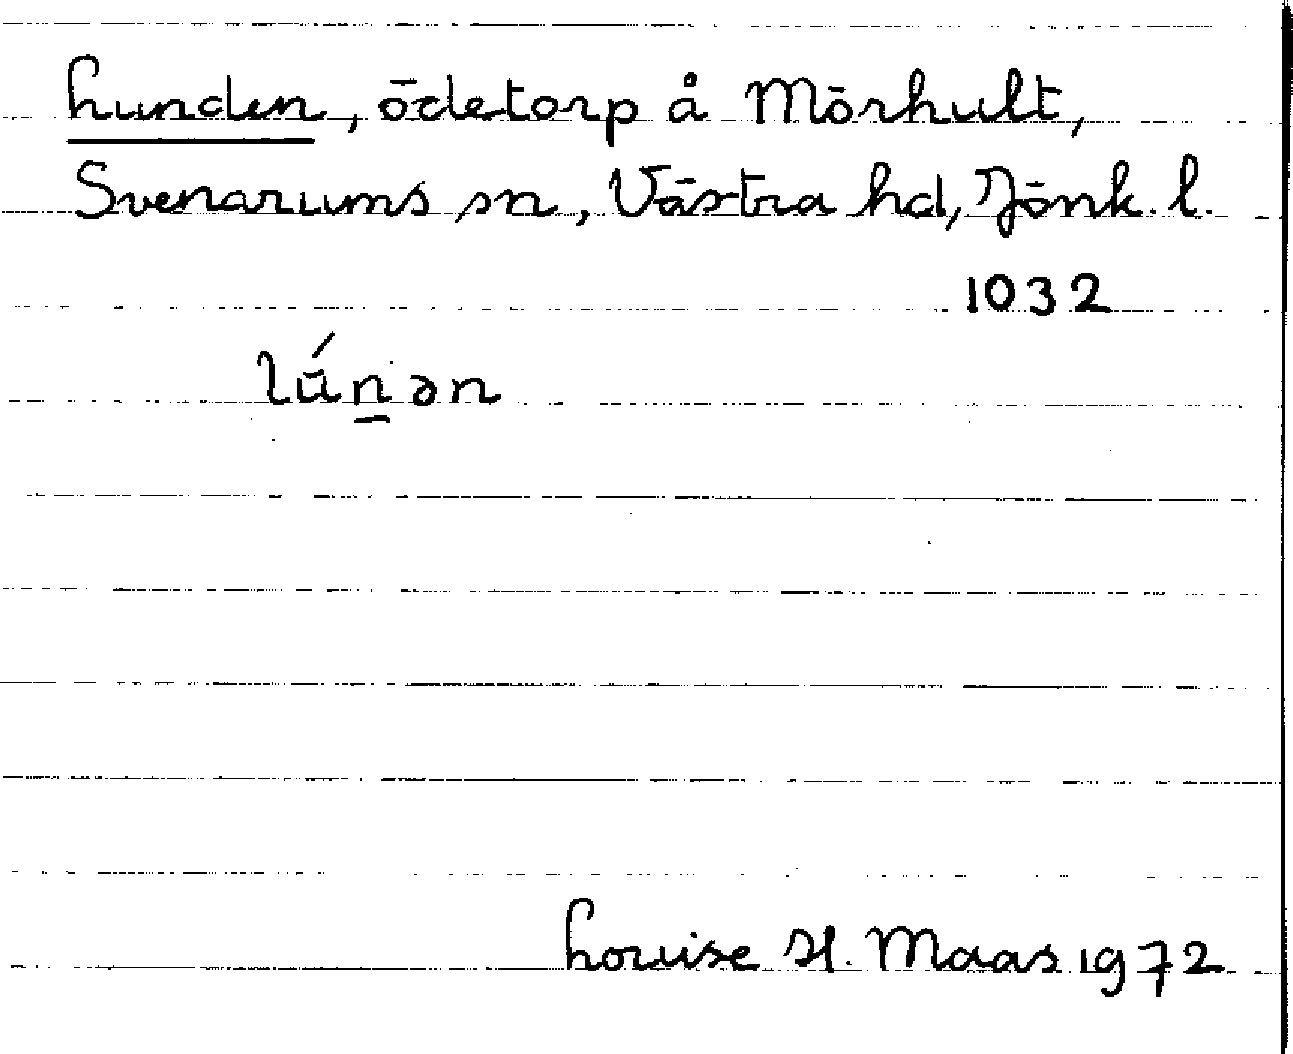 Lunden, ödetorp å Mörhult,
Svenarums sn, Västra hd, Jönk. l.
1032
lú̄n̲ən
Louise H. Maas 1972